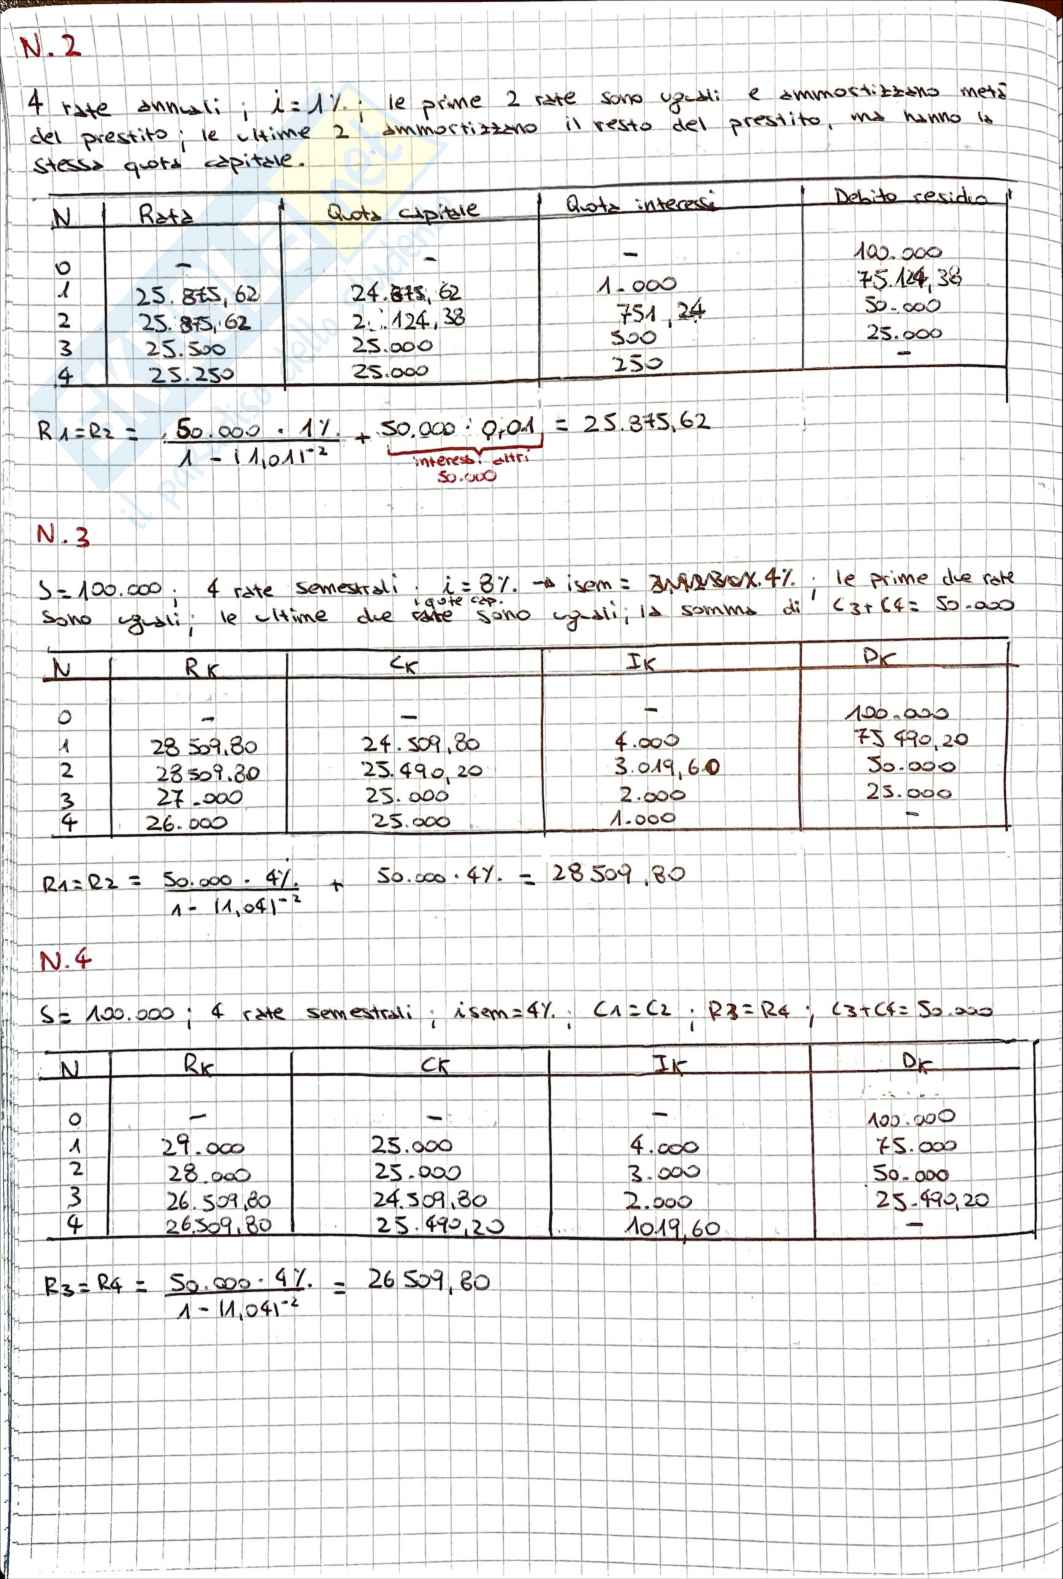 N.2
4 rate annuali ; i=1% ; le prime 2 rate sono uguali e ammortizzano metà
del prestito; le ultime 2 ammortizzano il resto del prestito, ma hanno la
stessa quota capitale.
N Rata Quota capitale Quota interessi Debito residuo
0 - - - 100.000
1 25.875,62 24.875,62 1.000 75.124,38
2 25.875,62 124,38 751,24 50.000
3 25.500 25.000 500 25.000
4 25.250 25.000 250 -
R1=R2 = 50.000 · 1% / 1 - (1,01)-2 + 50.000 · 0,01 = 25.875,62
interessi altri
50.000
N.3
S=100.000; 4 rate semestrali; i=8% → isem = 4%; le prime due rate
sono uguali; le ultime due quote cap. sono uguali; la somma di C3+C4= 50.000
N RK CK IK DK
0 - - - 100.000
1 28 509,80 24.509,80 4.000 75 490,20
2 28509,80 25.490,20 3.019,60 50.000
3 27.000 25.000 2.000 25.000
4 26.000 25.000 1.000 -
R1=R2 = 50.000 · 4% / 1 - (1,04)-2 + 50.000 · 4% = 28509,80
N.4
S= 100.000; 4 rate semestrali; isem=4%; C1=C2; R3=R4; C3+C4= 50.000
N RK CK IK DK
0 - - - 100.000
1 29.000 25.000 4.000 75.000
2 28.000 25.000 3.000 50.000
3 26.509,80 24.509,80 2.000 25.490,20
4 26.509,80 25.490,20 1019,60 -
R3=R4 = 50.000 · 4% / 1 - (1,04)-2 = 26509,80